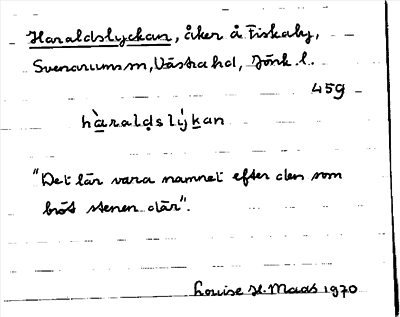 Haraldslyckan, åker å Fiskaby,
Svenarums sn, Västra hd, Jönk. l.
459
hàraldslýkan
"Det lär vara namnet efter den som
bröt stenen där".
Louise H. Maas 1970